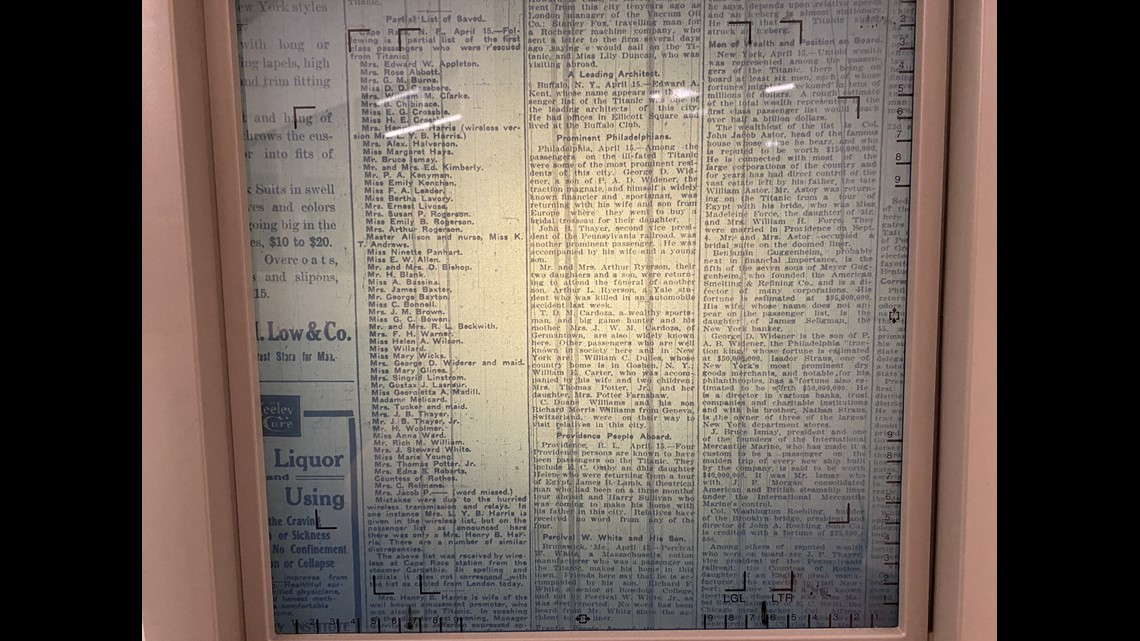 New York styles
with long or
ing lapels, high
and trim fitting
t and hang of
throws the cus-
r into fits of
Suits in swell
res and colors
going big in the
es, $10 to $20.
Overcoats,
s and slipons,
15.
I. Low & Co.
Keeley
Cure
Liquor
and
Using
the Craving
or Sickness
No Confinement
n or Collapse
Titanic.
Partial List of Saved.
N. F., April 15.—Fol-
lowing is a partial list of the first
class passengers who were rescued
from Titanic:
Mrs. Edward W. Appleton.
Mrs. Rose Abbott.
Mrs. G. M. Burns.
Miss D. D.
Mrs. M. Clarke.
Mrs. Chibinace.
Miss E. G. Crossbie.
Miss H. E.
Mrs. Harris (wireless ver-
sion L. Y. B. Harris.)
Mrs. Alex. Halverson.
Miss Margaret Hays.
Mr. Bruce Ismay.
Mr. and Mrs. Ed. Kimberly.
Mr. P. A. Kenyman.
Miss Emily Kenchen.
Miss F. A. Leader.
Miss Bertha Lavory.
Mrs. Ernest Livose.
Mrs. Susan P. Rogerson.
Miss Emily B. Rogerson.
Mrs. Arthur Rogerson.
Master Allison and nurse, Miss K.
T. Andrews.
Miss Ninette Panhart.
Miss E. W. Allen.
Mr. and Mrs. D. Bishop.
Mr. H. Blank.
Miss A. Bassina.
Mrs. James Baxter.
Mr. George Bayton.
Miss C. Bonnell.
Mrs. J. M. Brown.
Miss G. C. Bowen.
Mr. and Mrs. R. L. Beckwith.
Mrs. F. H. Warner.
Miss Helen A. Wilson.
Miss Willard.
Miss Mary Wicks.
Mrs. George D. Widener and maid.
Miss Mary Glines.
Mrs. Singrid Linstrom.
Mr. Gustav J. Lasneur.
Miss Georgietta A. Madill.
Madame Melicard.
Mrs. Tucker and maid.
Mrs. J. B. Thayer.
Mr. J. B. Thayer, Jr.
Mr. H. Woolmer.
Miss Anna Ward.
Mr. Rich M. William.
Mrs. J. Steward White.
Miss Marie Young.
Mrs. Thomas Potter, Jr.
Mrs. Edna S. Roberts.
Countess of Rothes.
Mrs. C. Rolmane.
Mrs. Jacob P.—— (word missed.)
Mistakes were due to the hurried
wireless transmission and relays. In
one instance Mrs. L. Y. B. Harris is
given in the wireless list, but on the
passenger list as announced here
there was only a Mrs. Henry B. Har-
ris. There are a number of similar
discrepancies.
The above list was received by wire-
less at Cape Race station from the
steamer Carpathia. In spelling and
initials it does not correspond with
the list as cabled from London today.
Mrs. Henry B. Harris is wife of the
well known amusement promoter, who
was also on the Titanic. In speaking
went from this city ten years ago as
London manager of the Vacuum Oil
Co.; Stanley Fox, travelling man for
a Rochester machine company, who
sent a letter to the firm several days
ago saying he would sail on the Ti-
tanic, and Miss Lily Duncan, who was
visiting abroad.
A Leading Architect.
Buffalo, N. Y., April 15.—Edward A.
Kent, whose name appears on the pas-
senger list of the Titanic is one of
the leading architects of this city.
He had offices in Ellicott Square and
lived at the Buffalo Club.
Prominent Philadelphians.
Philadelphia, April 15.—Among the
passengers on the ill-fated Titanic
were some of the most prominent resi-
dents of this city. George D. Wid-
ener, a son of P. A. D. Widener, the
traction magnate, and himself a widely
known financier and sportsman, was
returning with his wife and son from
Europe where they went to buy a
bridal trosseau for their daughter.
John B. Thayer, second vice presi-
dent of the Pennsylvania railroad, was
another prominent passenger. He was
accompanied by his wife and a young
son.
Mr. and Mrs. Arthur Ryerson, their
two daughters and a son, were return-
ing to attend the funeral of another
son, Arthur L. Ryerson, a Yale stu-
dent who was killed in an automobile
accident last week.
T. D. M. Cardoza, a wealthy sports-
man, and big game hunter and his
mother Mrs. J. W. M. Cardoza, of
Germantown, are also widely known
here. Other passengers who are well
known in society here and in New
York are: William C. Dulles, whose
country home is in Goshen, N. Y.;
William E. Carter, who was accom-
panied by his wife and two children;
Mrs. Thomas Potter, Jr., and her
daughter, Mrs. Potter Farnshaw.
C. Duane Williams and his son
Richard Morris Williams from Geneva,
Switzerland, were on their way to
visit relatives in this city.
Providence People Aboard.
Providence, R. I., April 15.—Four
Providence persons are known to have
been passengers on the Titanic. They
include E. C. Ostby and his daughter
Helen who were returning from a tour
of Egypt, James B. Lamb, a theatrical
man who had been on a three months'
tour abroad and Harry Sullivan who
was coming to make his home with
his father in this city. Relatives have
received no word from any of the
four.
Percival W. White and His Son.
Brunswick, Me., April 15.—Percival
W. White, a Massachusetts cotton
manufacturer who was a passenger on
the Titanic, makes his home in this
town. Friends here say that he is ac-
companied by his son, Richard F.
White, a senior at Bowdoin College,
and not by Percival W. White, Jr., as
was first reported. No word has been
heard from Mr. White since the ac-
he says, depends upon relative speed
and an iceberg is almost stationary
Men of Wealth and Position on Board.
New York, April 15.—Untold wealth
was represented among the passen-
gers of the Titanic, there being on
board at least six men, each of whose
fortunes might be reckoned in tens of
millions of dollars. A rough estimate
of the total wealth represented in the
first class passenger list would reach
over half a billion dollars.
The wealthiest of the list is Col.
John Jacob Astor, head of the famous
house whose name he bears, and who
is reputed to be worth $150,000,000.
He is connected with most of the
large corporations of the country and
for years has had direct control of the
vast estate left by his father, the late
William Astor. Mr. Astor was return-
ing on the Titanic from a tour of
Egypt with his bride, who was Miss
Madeleine Force, the daughter of Mr.
and Mrs. William H. Force. They
were married in Providence on Sept.
Mr. and Mrs. Astor occupied a
bridal suite on the doomed liner.
Benjamin Guggenheim, probably
next in financial importance, is the
fifth of the seven sons of Meyer Gug-
genheim, who founded the American
Smelting & Refining Co., and is a di-
rector of many corporations. His
fortune is estimated at $95,000,000.
His wife, whose name does not ap-
pear on the passenger list, is the
daughter of James Seligman, the
New York banker.
George D. Widener is the son of P.
A. B. Widener, the Philadelphia "trac-
tion king" whose fortune is estimated
at $50,000,000. Isador Straus, one of
New York's most prominent dry
goods merchants, and notable for his
philanthropies, has a fortune also es-
timated to be worth $50,000,000. He
is a director in various banks, trust
companies and charitable institutions
and with his brother, Nathan Straus,
is the owner of three of the largest
New York department stores.
J. Bruce Ismay, president and one
of the founders of the International
Mercantile Marine, who has made it a
custom to be a passenger on the
maiden trip of every new ship built
by the company, is said to be worth
$40,000,000. It was Mr. Ismay who
with J. P. Morgan consolidated
American and British steamship lines
under the International Mercantile
Marine's control.
Col. Washington Roebling, builder
of the Brooklyn bridge, president and
director of John A. Roebling Sons Co.,
is credited with a fortune of $25,000,-
000.
Among others of reputed wealth
who were on board are J. B. Thayer,
vice president of the Pennsylvania
railroad, the Countess of Rothes,
LGL
LTR